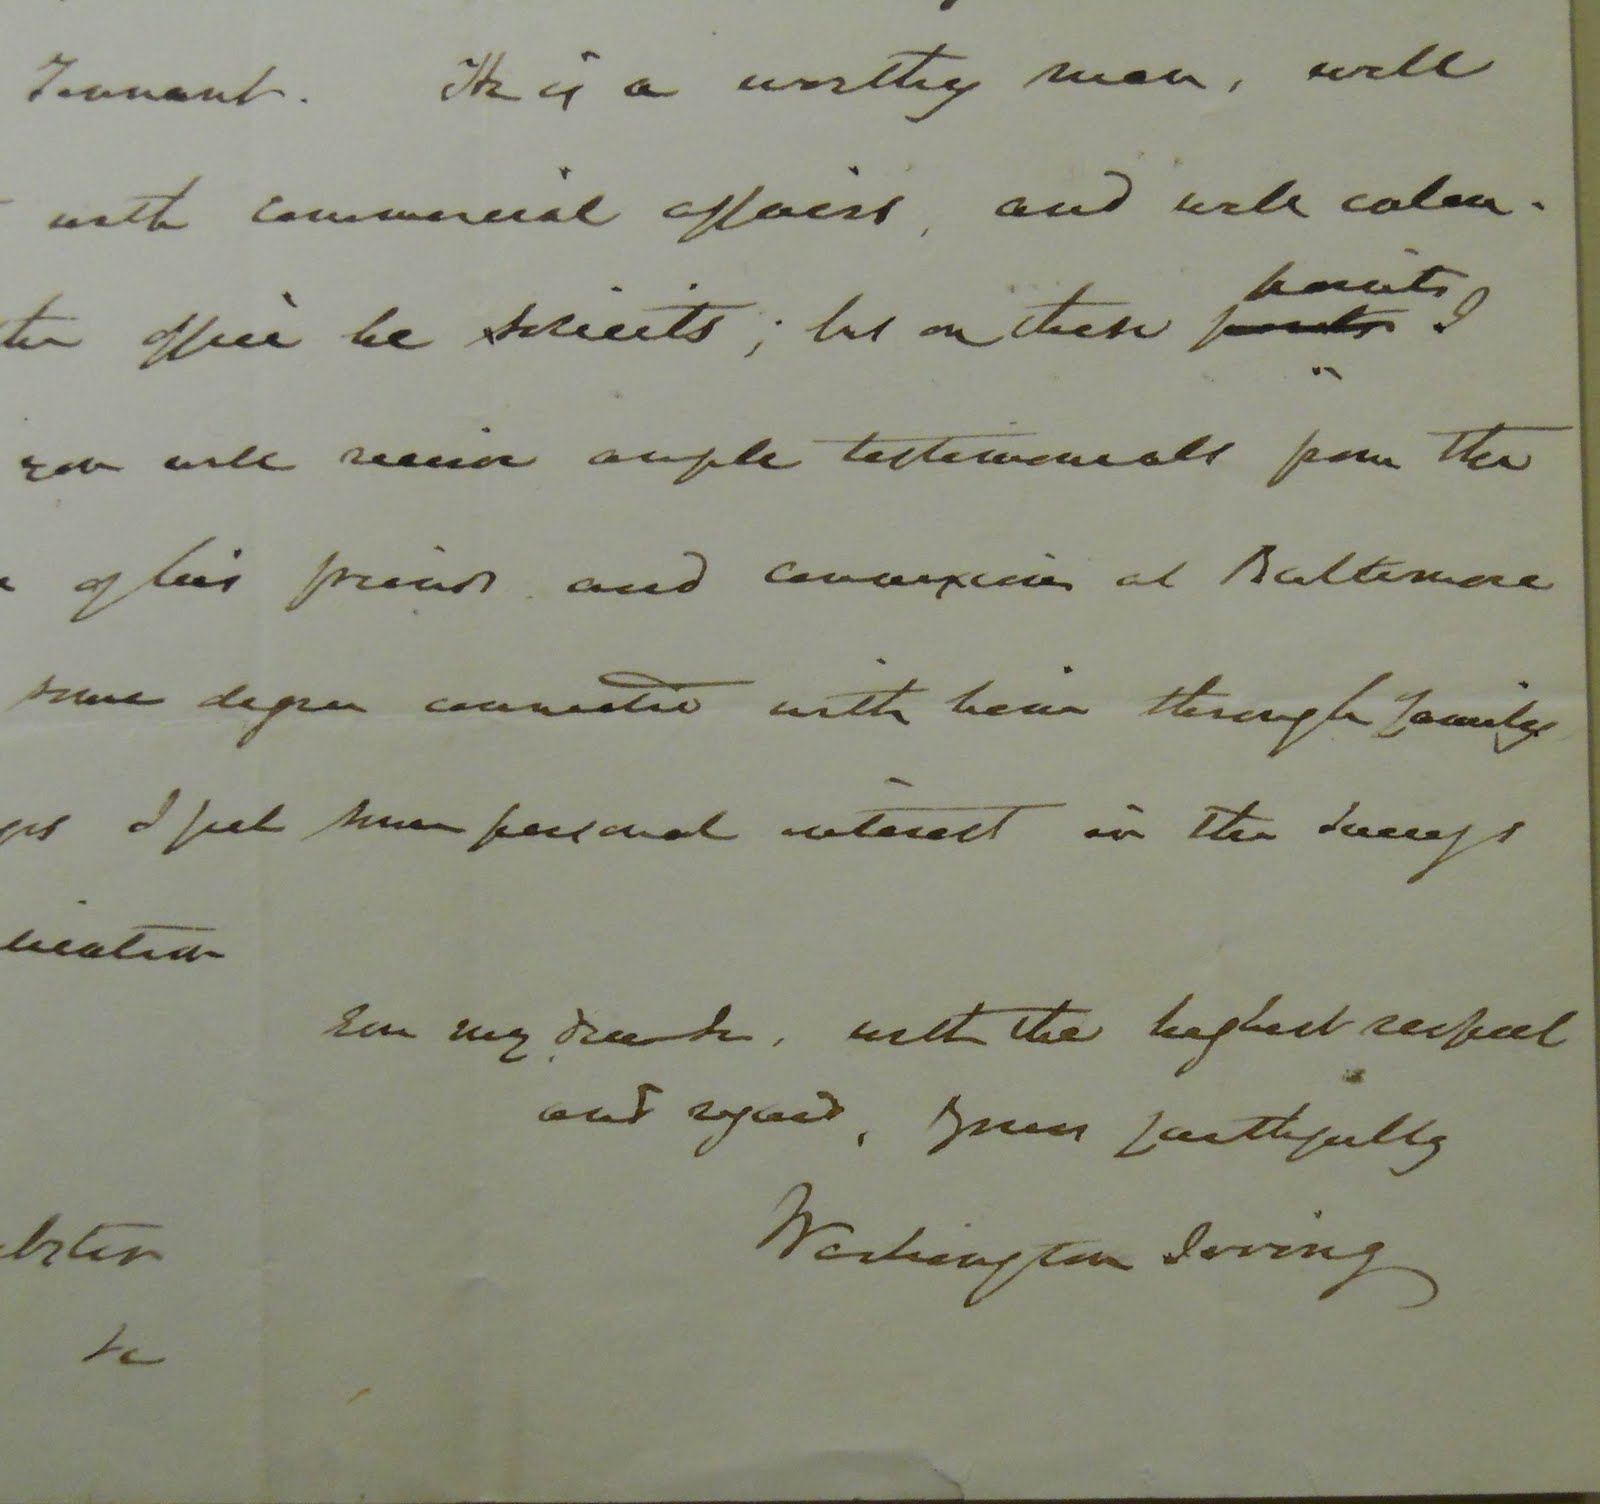 Tennant. He is a worthy man, well
with commercial affairs, and well calcu-
the office he solicits; but on these points points I
you will receive ample testimonials from the
of his friends and connexions at Baltimore
some degree connected with him through family
I feel some personal interest in the success
lication
I am my dear Sir, with the highest respect
and regard, Yours faithfully
Washington Irving
ebster
&c